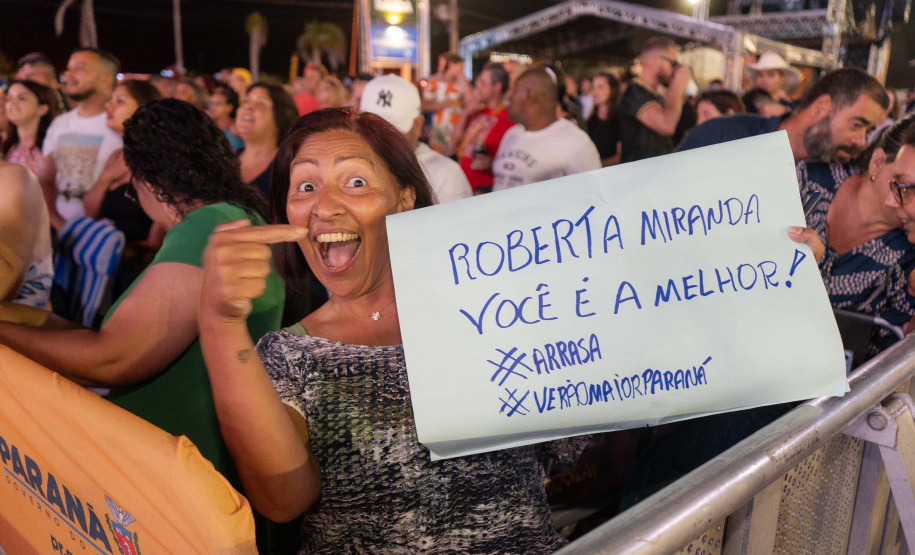 ROBERTA MIRANDA
VOCÊ É A MELHOR!
#ARRASA
#VERÃOMAIORPARANÁ
PARANÁ
GOVERNO DO